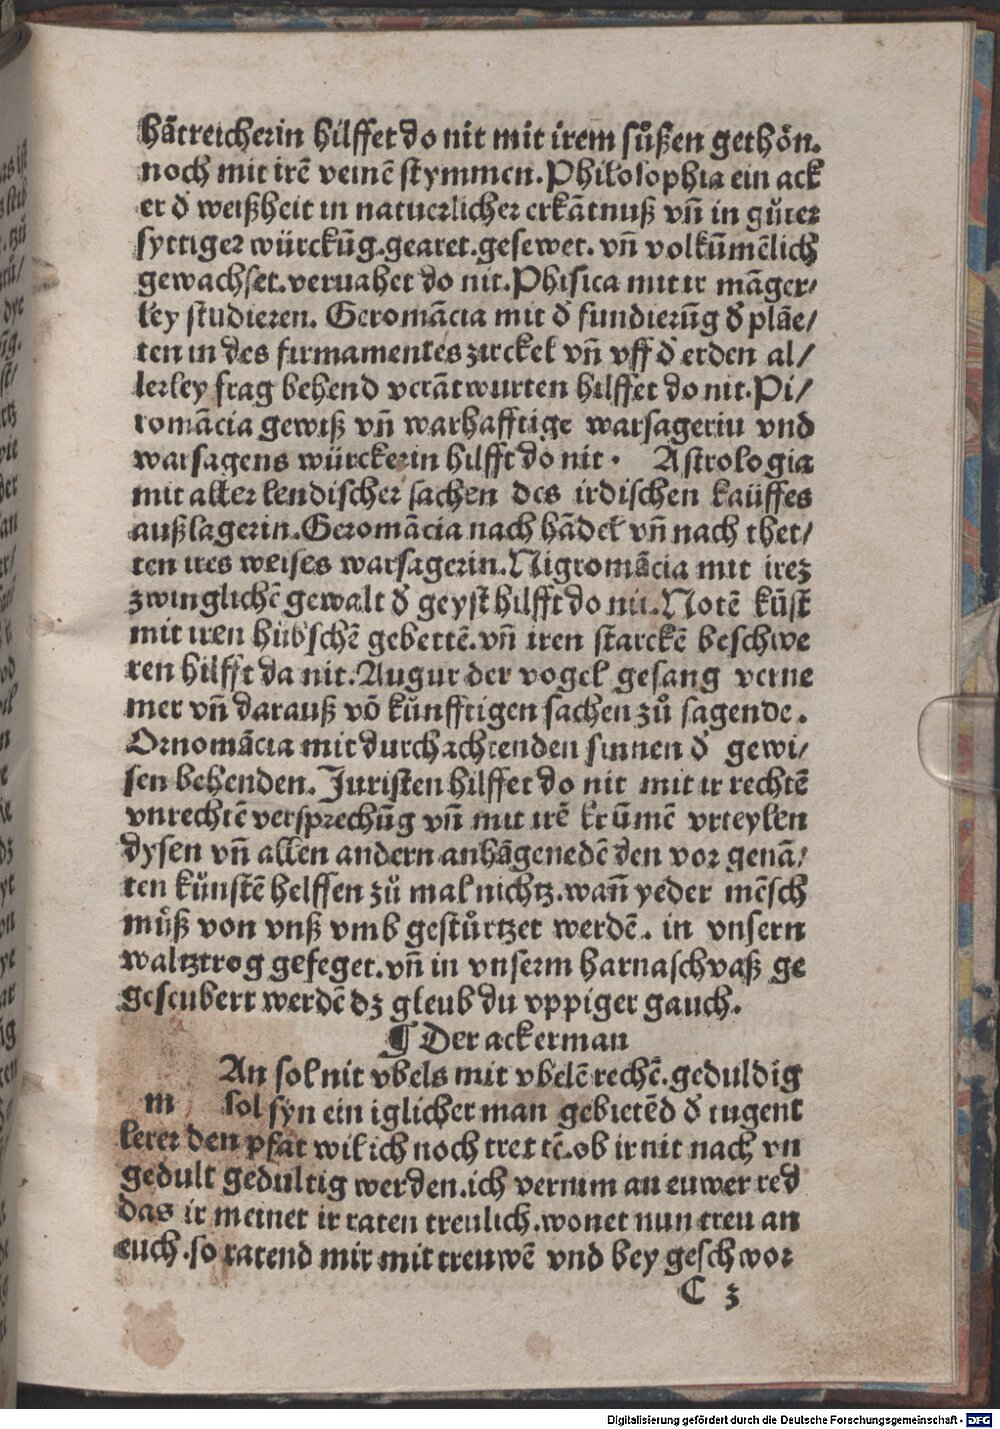 hātreicherin hilffet do nit mit irem sůßen gethön.
noch mit irē veinē stymmen. Philosophia ein ack
er d̄ weißheit in natuerlicher erkātnuß vn̄ in gůter
syttiger würckūg. gearet. gesewet. vn̄ volkūmēlich
gewachset. veruahet do nit. Phisica mit ir māger/
ley studieren. Geromācia mit d̄ fundierūg d̄ plāe/
ten in des firmamentes zirckel vn̄ vff d̄ erden al/
lerley frag behend verātwurten hilffet do nit. Pi/
romācia gewiß vn̄ warhafftige warsageriu vnd
warsagens würckerin hilfft do nit. Astrologia
mit aller lendischer sachen des irdischen kaüffes
außlagerin. Geromācia nach hādel vn̄ nach thet/
ten ires weises warsagerin. Nigromācia mit irez
zwinglichē gewalt d̄ geyst hilfft do nit. Notē kūst
mit iren hübschē gebettē. vn̄ iren starckē beschwe
ren hilfft da nit. Augur der vogel gesang verne
mer vn̄ darauß vō künfftigen sachen zů sagende.
Ornomācia mit durchachtenden sinnen d̄ gewi/
sen behenden. Juristen hilffet do nit mit ir rechtē
vnrechtē versprechūg vn̄ mit irē krūmē vrteylen
dysen vn̄ allen andern anhāgenedē den vor genā/
ten künstē helffen zů mal nichtz. wan̄ yeder mēsch
můß von vnß vmb gestürtzet werdē. in vnsern
waltztrog gefeget. vn̄ in vnserm harnaschvaß ge
gescubert werdē dz gleub du vppiger gauch.
¶ Der ackerman
An sol nit vbels mit vbelē rechē. geduldig
m sol syn ein iglicher man gebietēd d̄ tugent
lerer den pfat wil ich noch trettē. ob ir nit nach vn
gedult gedultig werden. ich vernim an euwer red
das ir meinet ir raten treulich. wonet nun treu an
euch. so ratend mir mit treuwē vnd bey geschwor
C 3
Digitalisierung gefördert durch die Deutsche Forschungsgemeinschaft - DFG